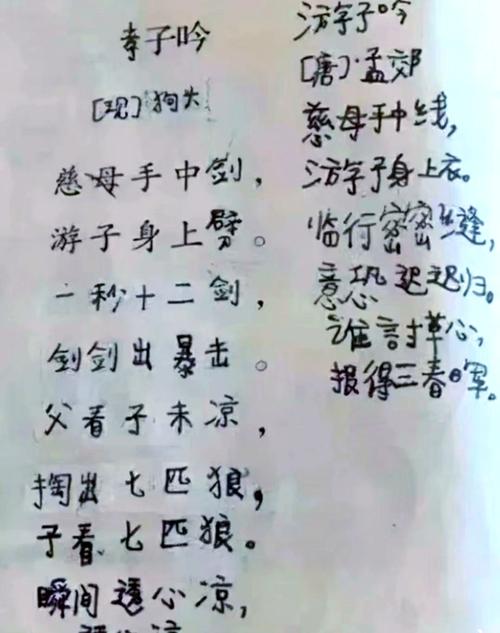 孝子吟
[现]狗头
慈母手中剑，
游子身上劈。
一秒十二剑，
剑剑出暴击。
父看子未凉，
掏出七匹狼，
子看七匹狼。
瞬间透心凉，
游子吟
[唐]·孟郊
慈母手中线，
游子身上衣。
临行密密缝，
意恐迟迟归。
谁討草心，
报得三春晖。